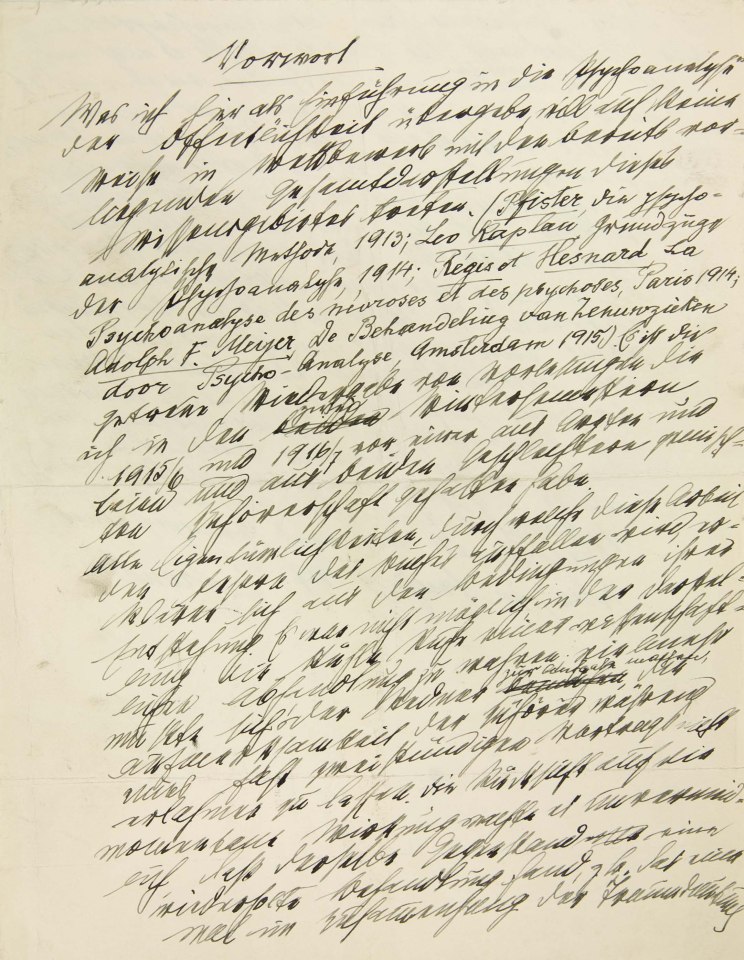 Vorwort
Was ich hier als Einführung in die Psychoanalyse
der Öffentlichkeit übergebe, will auf keine
Weise in Wettbewerb mit den bereits vor-
liegenden Gesamtdarstellungen dieses
Wissensgebietes treten. (Pfister, die psycho-
analytische Methode, 1913; Leo Kaplan, Grundzüge
der Psychoanalyse, 1914; Régis et Hesnard, La
Psychoanalyse des névroses et des psychoses, Paris 1914;
Adolph F. Meijer, De Behandeling van Zenuwzieken
door Psycho-Analyse, Amsterdam 1915) Es ist die
getreue Wiedergabe von Vorlesungen, die
ich in den zwei Wintersemestern
1915/6 und 1916/7 vor einer aus Ärzten und
Laien und aus beiden Geschlechtern gemisch-
ten Zuhörerschaft gehalten habe.
Alle Eigentümlichkeiten, durch welche diese Arbeit
den Lesern des Buches auffallen wird, er-
klären sich aus den Bedingungen ihrer
Entstehung. Es war nicht möglich, in der Darstel-
lung die kühle Ruhe einer wissenschaft-
lichen Abhandlung zu wahren; vielmehr
mußte sich der Redner zur Aufgabe machen, die
Aufmerksamkeit der Zuhörer während
eines fast zweistündigen Vortrags nicht
erlahmen zu lassen. Die Rücksicht auf die
momentane Wirkung machte es unvermeid-
lich, daß derselbe Gegenstand eine
wiederholte Behandlung fand, z. B. das eine
mal im Zusammenhang der Traumdeutung